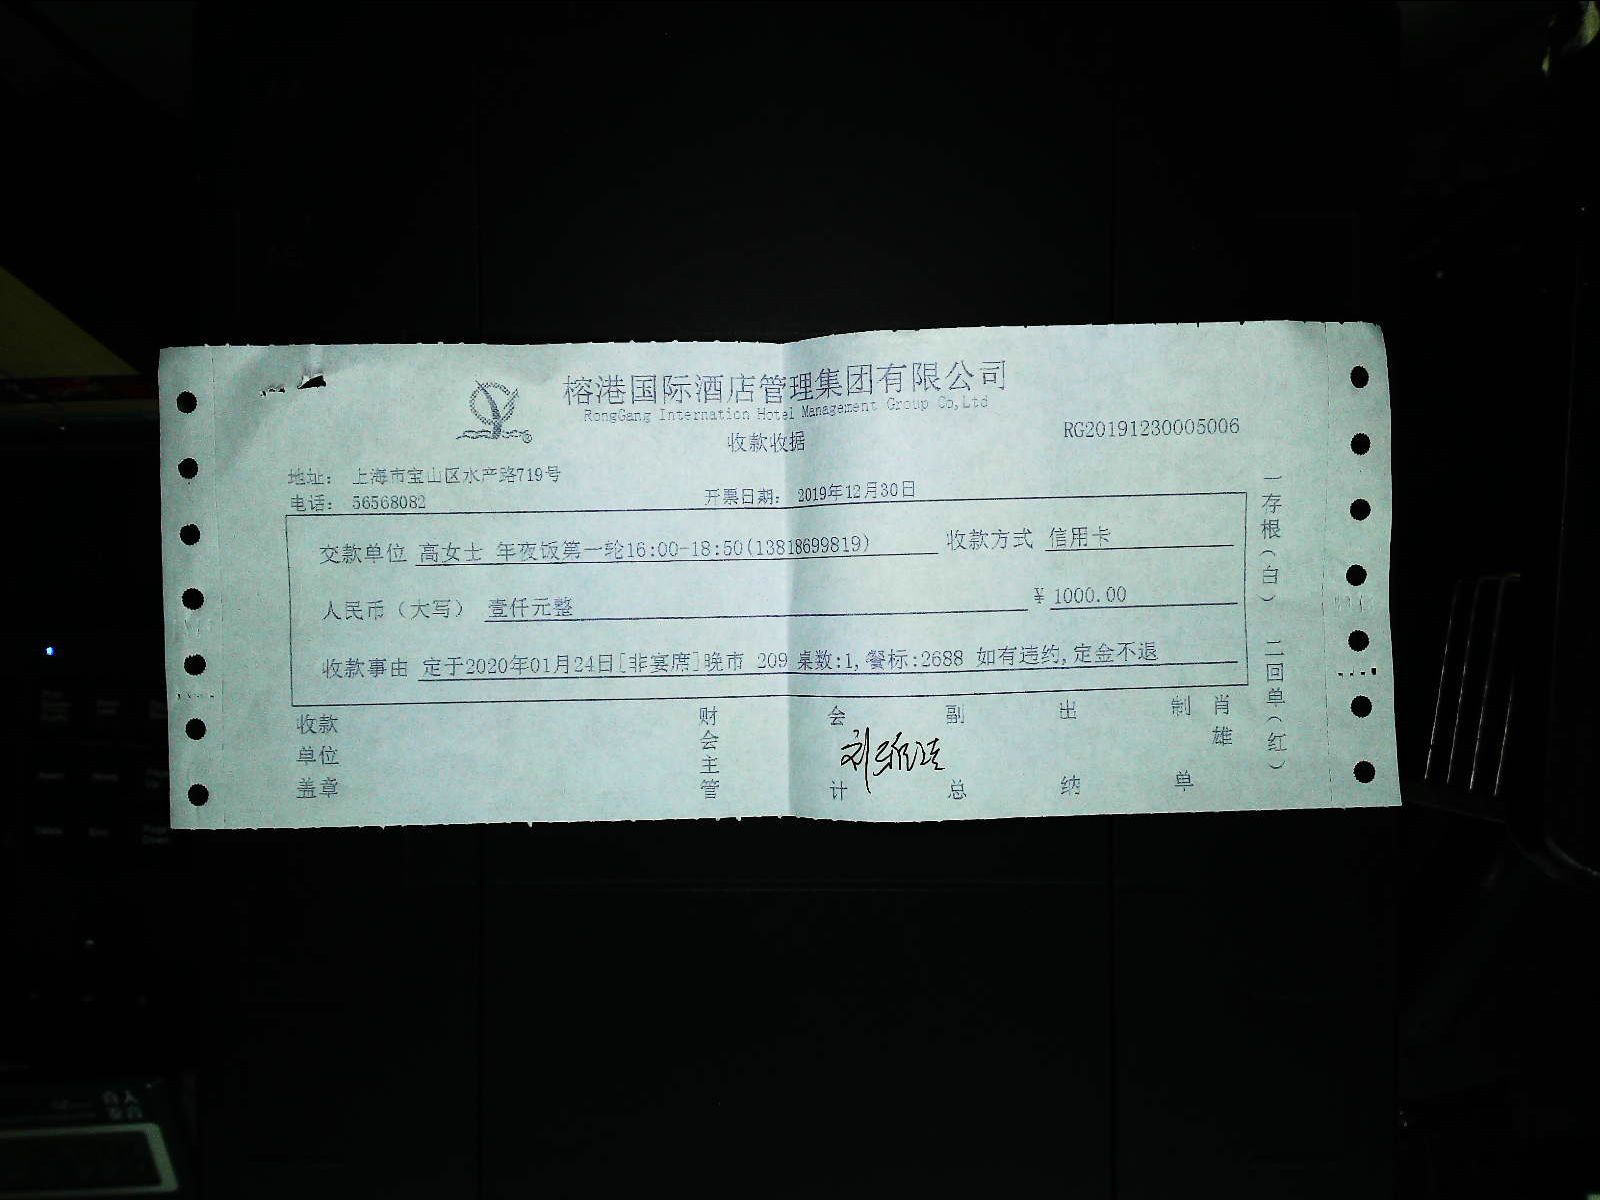 榕港国际酒店管理集团有限公司
RongGang Internation Hotel Management Group Co,Ltd
收款收据
RG20191230005006
地址： 上海市宝山区水产路719号
电话： 56568082
开票日期： 2019年12月30日
交款单位 高女士 年夜饭第一轮16:00-18:50(13818699819) 收款方式 信用卡
人民币（大写） 壹仟元整 ¥ 1000.00
收款事由 定于2020年01月24日[非宴席]晚市 209 桌数:1,餐标:2688 如有违约,定金不退
收款单位盖章
财会主管
会计
副总
出纳
制单
肖雄
一存根（白） 二回单（红）